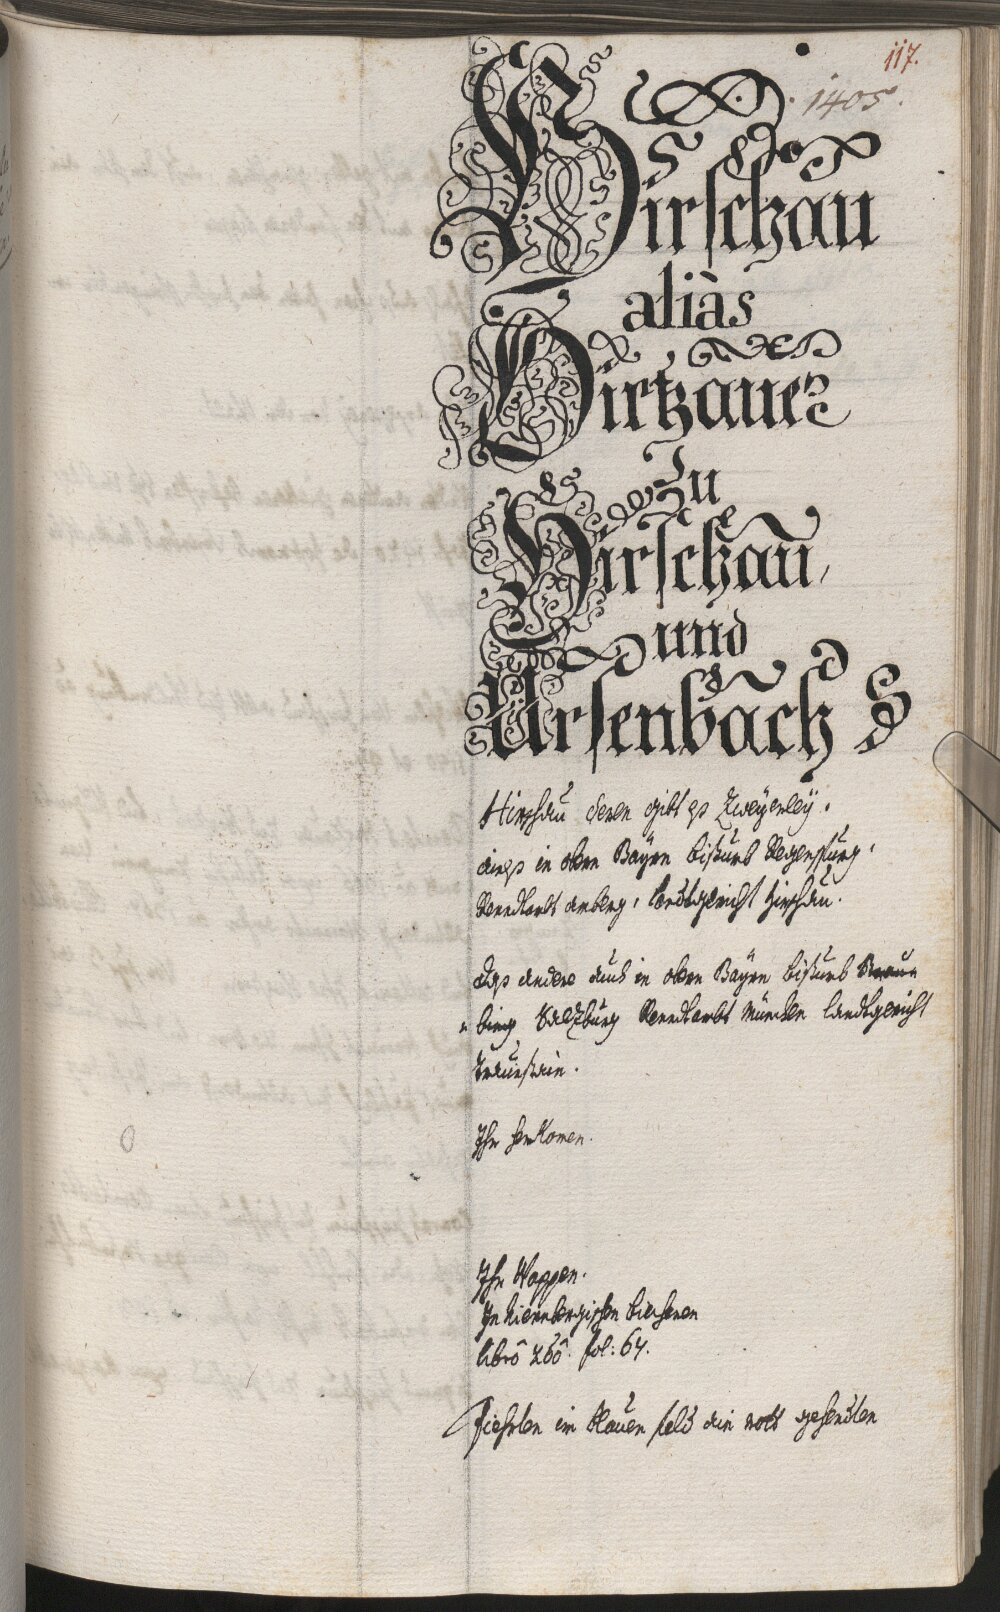 117.
1405.
Hirschau
aliàs
Hirtzauer
Zu
Hirschau,
und
Ursenbach
Hirschau deren gibt es Zweÿerleÿ.
aines in obern Bayrn bistumb Regenspurg,
Renndtambt amberg, landtgericht Hirschau.
das andere auch in obern Bayrn bistumb
Saltzburg Renndtambt München landtgericht
Traunstain.
Ihr herkomen.
Ihr Wappen.
In Niernbergischen biecheren
librô 2dô. fol: 64.
fiehrten im blauen feld ain rott